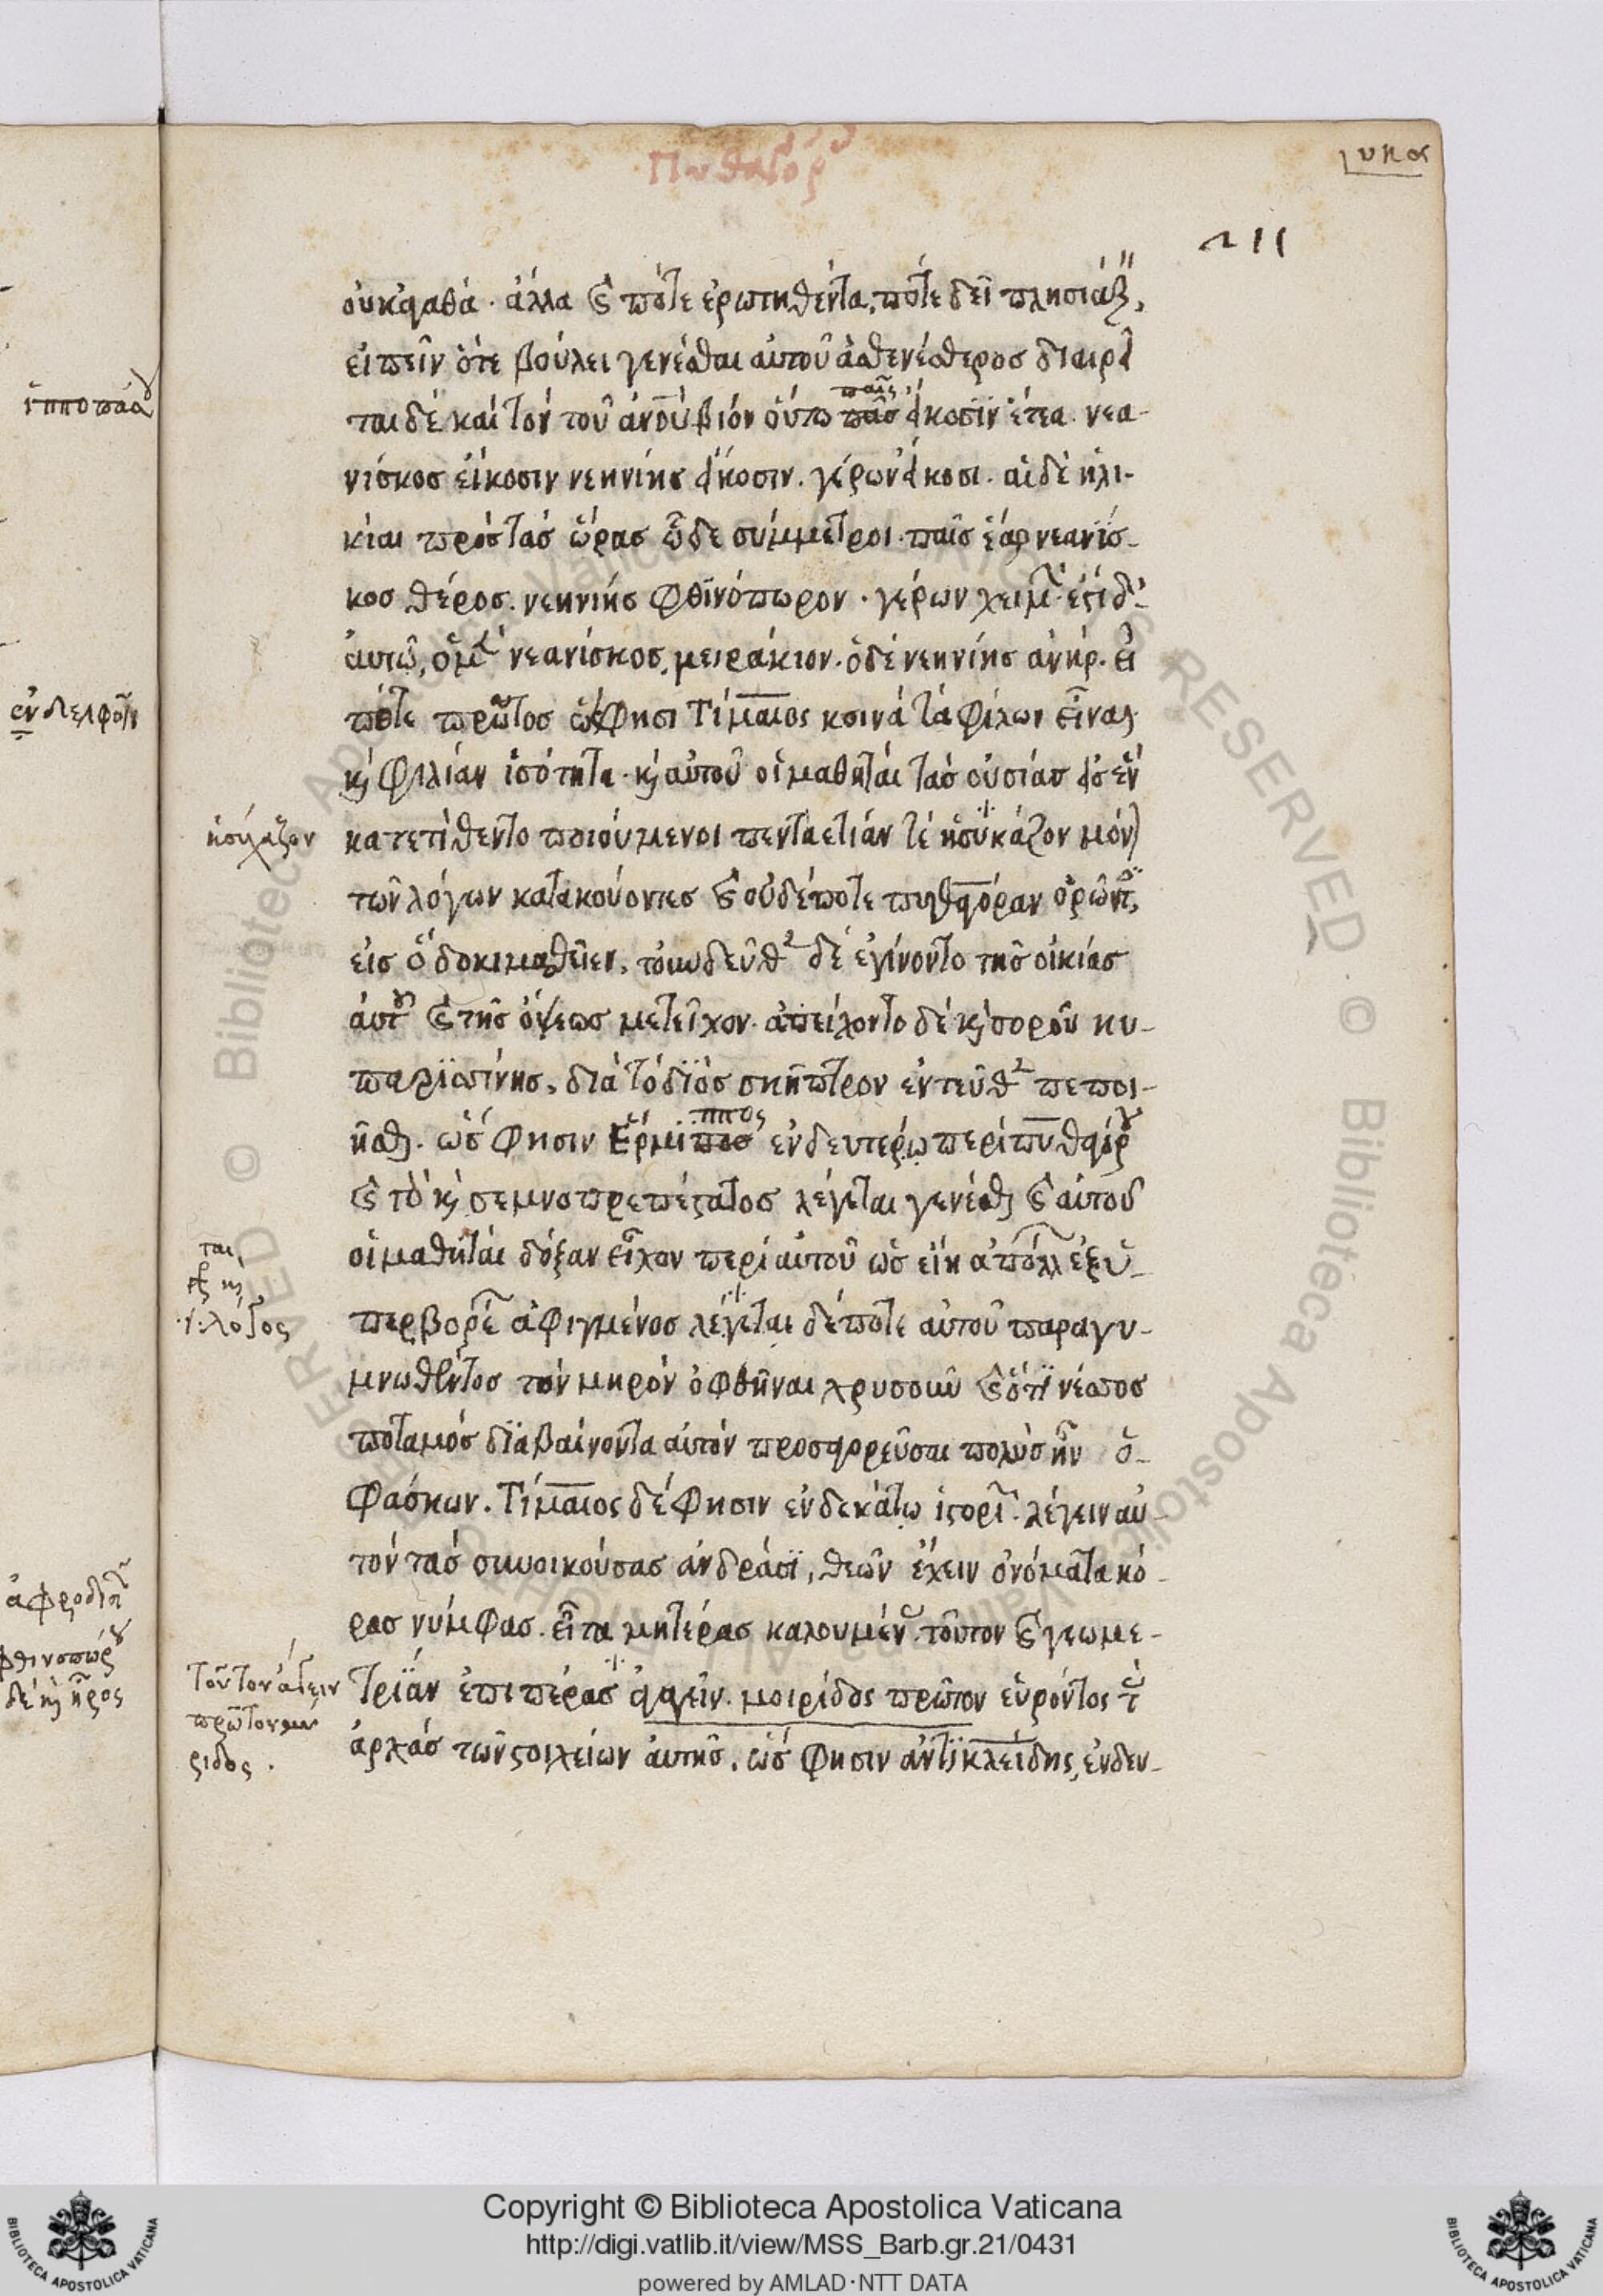 Πυθαγόρου
211
οὐκ ἀγαθά. ἀλλὰ καὶ πότε ἐρωτηθέντα, πότε δεῖ πλησιάζειν,
εἰπεῖν ὅτε βούλει γενέσθαι αὐτοῦ ἀσθενέστερος διαιρεῖ
ται δὲ καὶ τὸν τοῦ ἀνοῦ βίον οὕτω παῖς εἴκοσιν ἔτεα. νεα-
νίσκος εἴκοσιν νεηνίης εἴκοσιν. γέρων εἴκοσι. αἱ δὲ ἡλι-
κίαι πρὸς τὰς ὥρας ὧδε σύμμετροι. παῖς ἔαρ νεανίσ-
κος θέρος. νεηνίης φθινόπωρον. γέρων χειμ. ἐστὶ δ'
αὐτῶ, ὁ μὲν νεανίσκος, μειράκιον. ὁ δὲ νεηνίης ἀνήρ. εἶ
πότε πρῶτος ὥς φησι Τίμαιος κοινὰ τὰ φίλων εἶναι
καὶ φιλίαν ἰσότητα. καὶ αὐτοῦ οἱ μαθηταὶ τὰς οὐσίας εἰς ἓν
κατετίθεντο ποιούμενοι πενταετίαν τὲ ἡσύκαζον μόνον
τῶν λόγων κατακούοντες καὶ οὐδέποτε πυθαγόραν ὁρῶντες,
εἰς ὃ δοκιμασθεῖεν. τοὐνδεῦθεν δὲ ἐγίνοντο τῆς οἰκίας
αὐτοῦ καὶ τῆς ὄψεως μετεῖχον. ἀπείχοντο δὲ καὶ σοροῦ κυ-
παρισσίνης, διὰ τὸ διὸς σκῆπτρον ἐντεῦθεν πεποι-
ῆσθαι. ὥς φησιν Ἕρμιππος ἐν δευτέρω περὶ πυθαγόρου
καὶ τὸ καὶ σεμνοπρεπέστατος λέγεται γενέσθαι καὶ αὐτοῦ
οἱ μαθηταὶ δόξαν εἶχον περὶ αὐτοῦ ὡς εἴη ἀπόλλ ἐξ ὑ-
περβορέ ἀφιγμένος λέγεται δέ ποτε αὐτοῦ παραγυ-
μνωθέντος τὸν μηρὸν ὀφθῆναι χρυσοῦν καὶ ὅτι νέσσος
ποταμὸς διαβαίνοντα αὐτὸν προσαγορεῦσαι πολὺς ἦν ὁ-
φάσκων. Τίμαιος δέ φησιν ἐν δεκάτω ἱστορι. λέγειν αὐ-
τὸν τὰς συνοικούσας ἀνδράσι, θεῶν ἔχειν ὀνόματα κό-
ρας νύμφας. εἶτα μητέρας καλουμέν. τοῦτον καὶ γεωμε-
τρίαν ἐπὶ πέρας ἀγαγεῖν. μοιρίδος πρῶτον εὑρόντος τ
ἀρχὰς τῶν στοιχείων αὐτῆς. ὥς φησιν ἀντικλείδης, ἐν δευ-
ἡσύχαζον
ται,
·γ· λόγος
τοῦτον ἄγειν
πρῶτον μοί
ριδος.
ἐν δελφοῖν
ἀφροδισί
φθινοπώρου
δὲ καὶ ἦρος
Copyright © Biblioteca Apostolica Vaticana
http://digi.vatlib.it/view/MSS_Barb.gr.21/0431
powered by AMLAD·NTT DATA
BIBLIOTECA APOSTOLICA VATICANA
BIBLIOTECA APOSTOLICA VATICANA